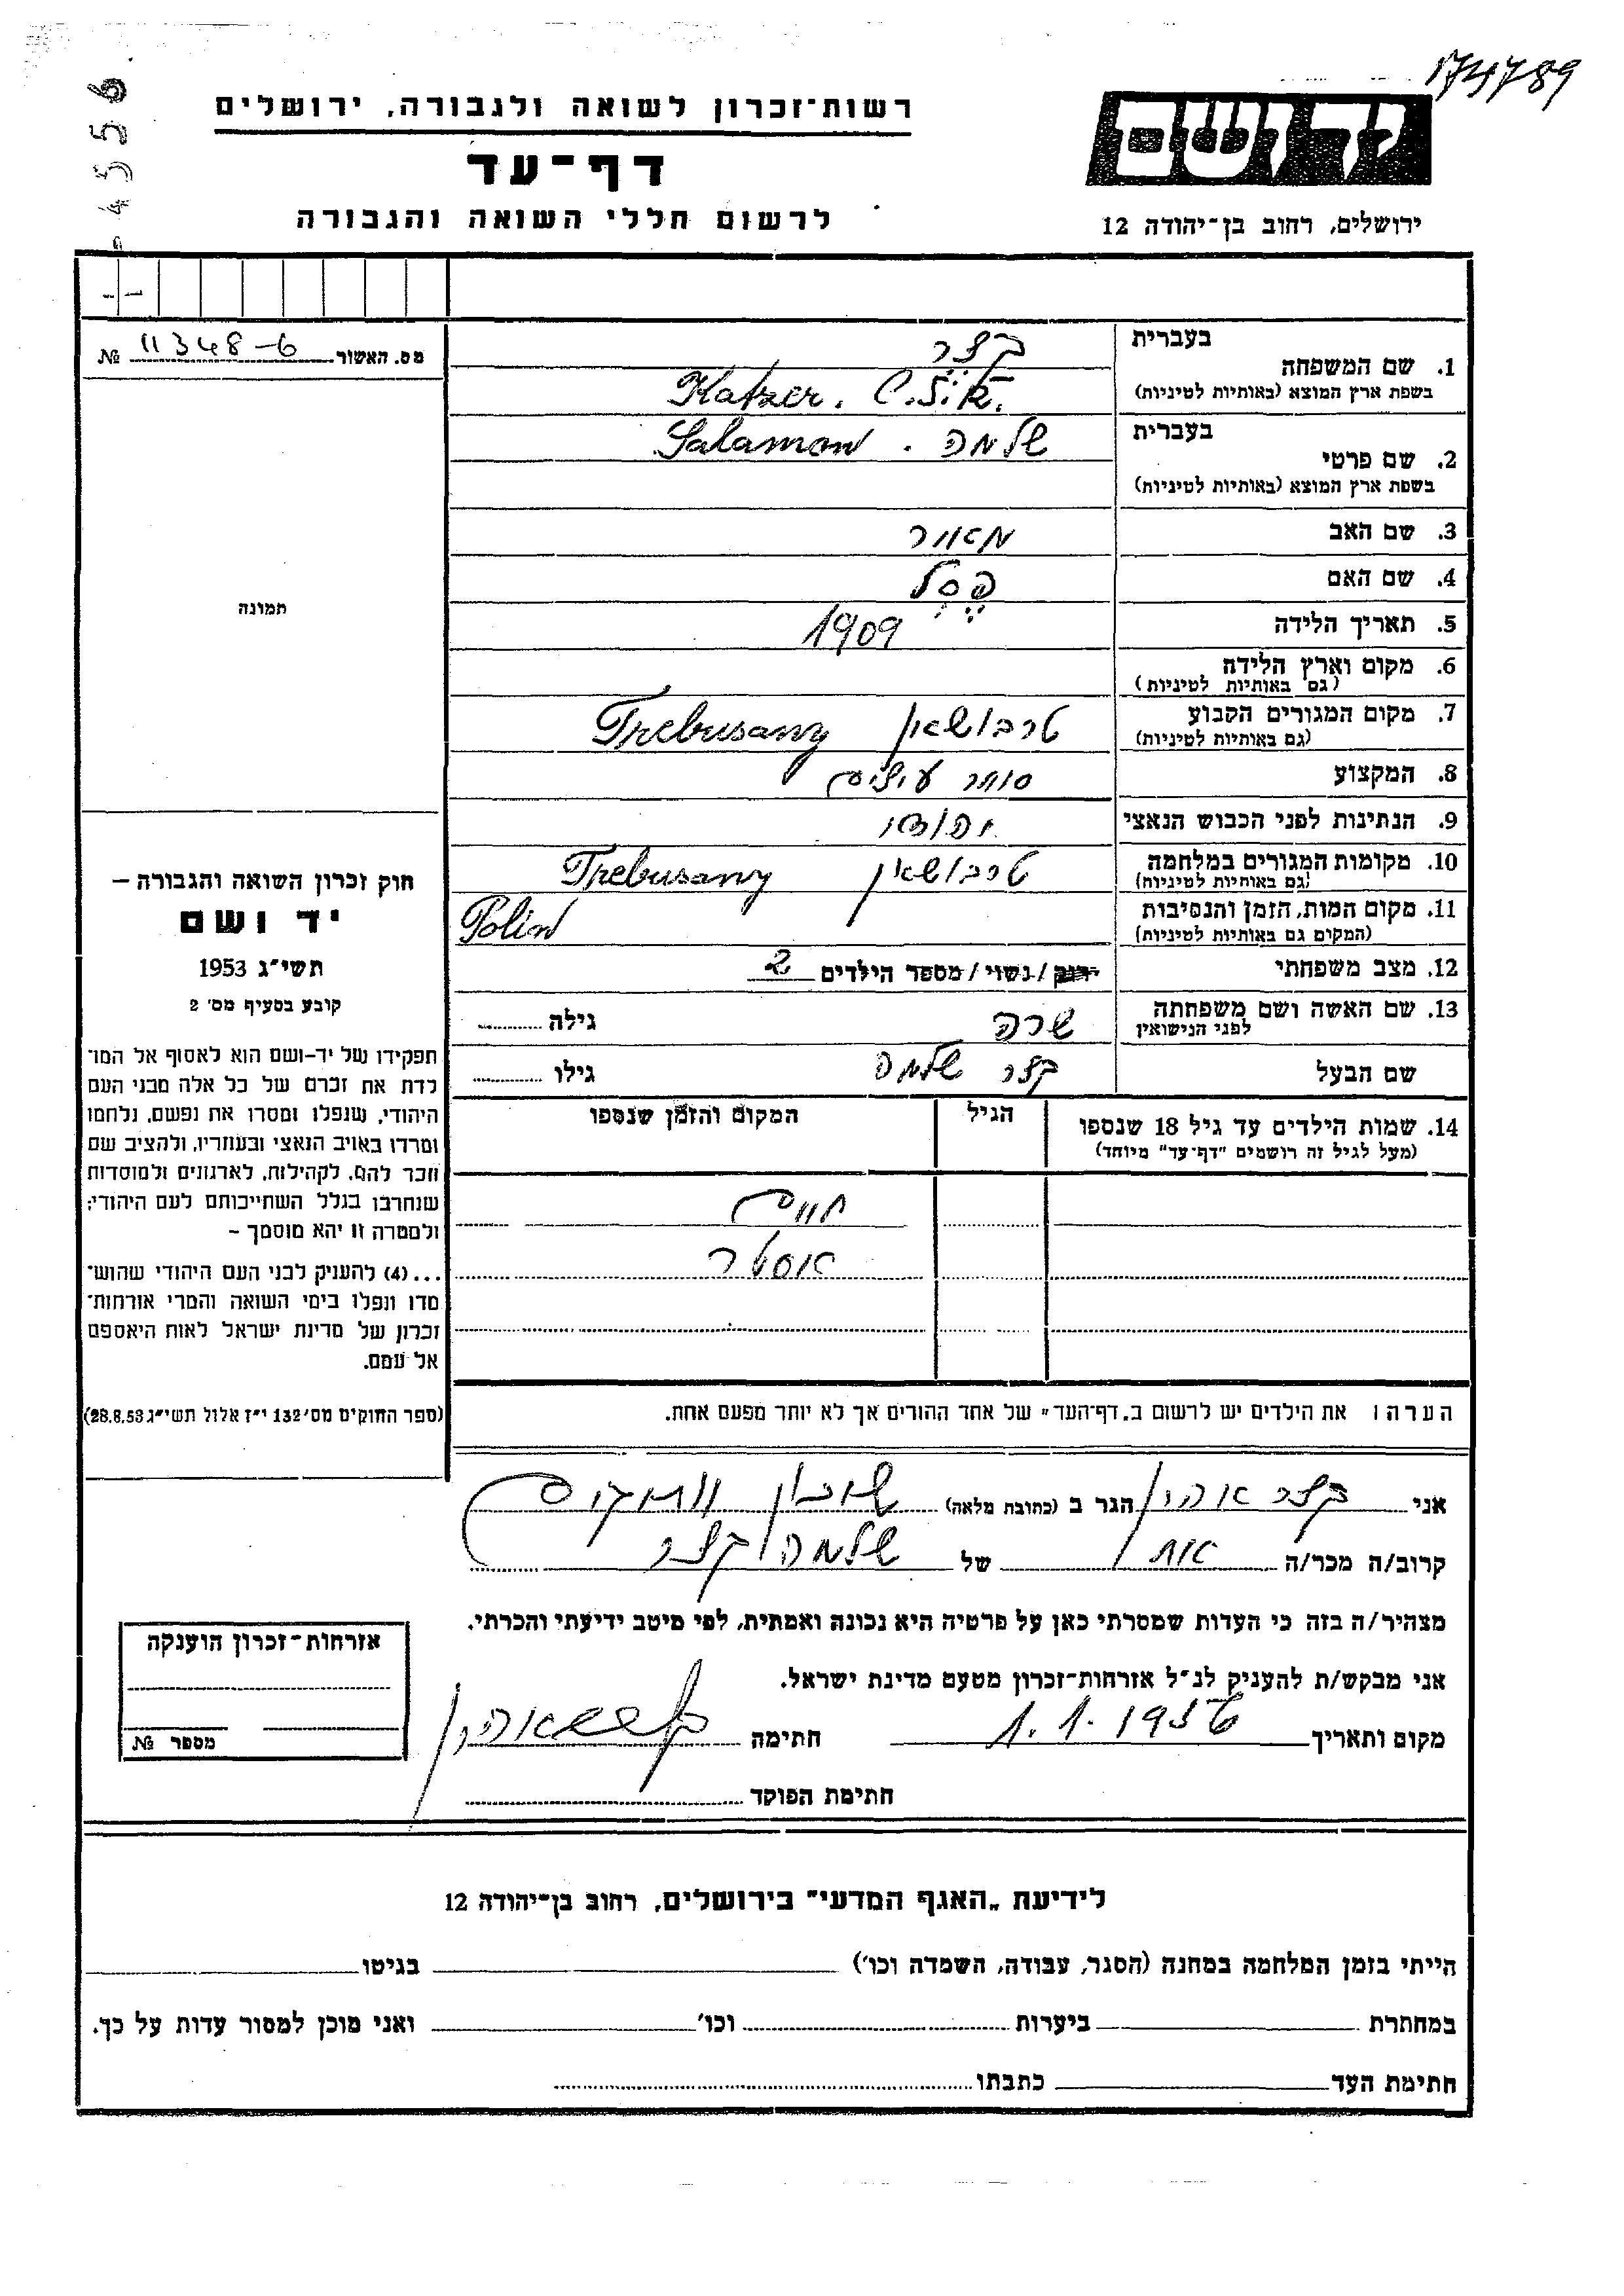 174789
רשות־זכרון לשואה ולגבורה, ירושלים
דף־עד
לרשום חללי השואה והגבורה
ידושם
ירושלים, רחוב בן־יהודה 12
4556
מס. האשור 11348-6 №
תמונה
חוק זכרון השואה והגבורה –
יד ושם
תשי״ג 1953
קובע בסעיף מס׳ 2
תפקידו של יד-ושם הוא לאסוף אל המו־
לדת את זכרם של כל אלה מבני העם
היהודי, שנפלו ומסרו את נפשם, נלחמו
ומרדו באויב הנאצי ובעוזריו, ולהציב שם
וזכר להם, לקהילות, לארגונים ולמוסדות
שנחרבו בגלל השתייכותם לעם היהודי;
ולמטרה זו יהא מוסמך –
...(4) להעניק לבני העם היהודי שהוש־
מדו ונפלו בימי השואה והמרי אורחות־
זכרון של מדינת ישראל לאות היאספם
אל עמם.
(ספר החוקים מס׳ 132 י״ז אלול תשי״ג 28.8.53)
1. שם המשפחה
בעברית קצר
בשפת ארץ המוצא (באותיות לטיניות) Katzer.
2. שם פרטי
בעברית שלמה . Salamon
בשפת ארץ המוצא (באותיות לטיניות)
3. שם האב מאיר
4. שם האם פסל
5. תאריך הלידה 1909
6. מקום וארץ הלידה
(גם באותיות לטיניות)
7. מקום המגורים הקבוע טרבושאן Trebusany
(גם באותיות לטיניות)
8. המקצוע סוחר עיצים
9. הנתינות לפני הכבוש הנאצי
10. מקומות המגורים במלחמה טרבושאן Trebusany
(גם באותיות לטיניות)
11. מקום המות, הזמן והנסיבות Polin
(המקום גם באותיות לטיניות)
12. מצב משפחתי רווק / נשוי / מספר הילדים 2
13. שם האשה ושם משפחתה שרה גילה
לפני הנישואין
שם הבעל קצר שלמה גילו
14. שמות הילדים עד גיל 18 שנספו הגיל המקום והזמן שנספו
(מעל לגיל זה רושמים "דף־עד" מיוחד)
חיים
אסטר
הערה: את הילדים יש לרשום ב„דף־העד" של אחד ההורים אך לא יותר מפעם אחת.
אני קצר אהרון הגר ב (כתובת מלאה) שיכון
קרוב/ה מכר/ה אח של שלמה קצר
מצהיר/ה בזה כי העדות שמסרתי כאן על פרטיה היא נכונה ואמתית, לפי מיטב ידיעתי והכרתי.
אני מבקש/ת להעניק לנ״ל אזרחות־זכרון מטעם מדינת ישראל.
מקום ותאריך 1.1.1956 חתימה
חתימת הפוקד
אזרחות־זכרון הוענקה
מספר №
לידיעת „האגף המדעי" בירושלים, רחוב בן־יהודה 12
הייתי בזמן המלחמה במחנה (הסגר, עבודה, השמדה וכו׳) בגיטו
במחתרת ביערות וכו׳ ואני מוכן למסור עדות על כך.
חתימת העד כתבתו